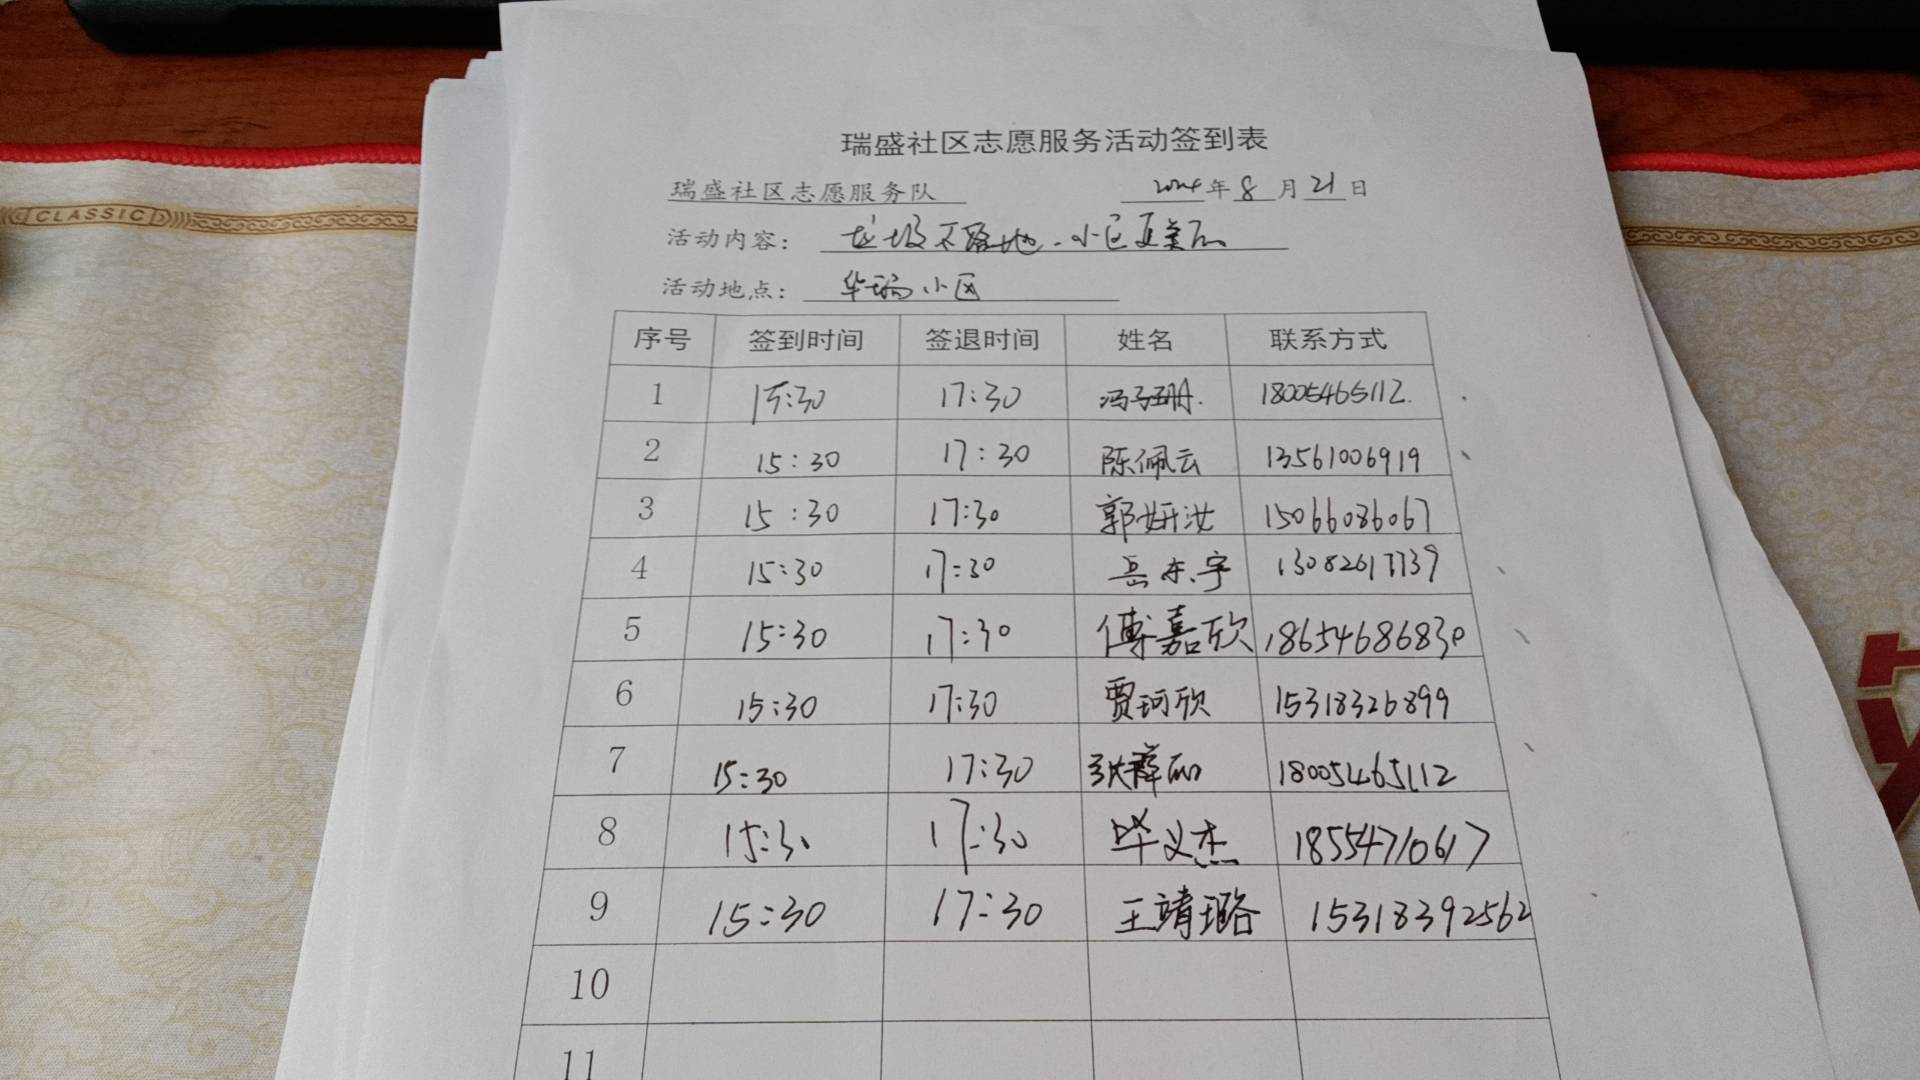 瑞盛社区志愿服务活动签到表
瑞盛社区志愿服务队 2024年8月21日
活动内容： 垃圾不落地.小区更美丽
活动地点： 华瑞小区
序号 签到时间 签退时间 姓名 联系方式
1 15:30 17:30 冯子珊. 18005465112.
2 15:30 17:30 陈佩云 13561006919
3 15:30 17:30 郭妍汝 15066086067
4 15:30 17:30 岳东宇 13082617739
5 15:30 17:30 傅嘉欣 18654686830
6 15:30 17:30 贾珂欣 15318326899
7 15:30 17:30 18005465112
8 15:30 17:30 毕义杰 18554710617
9 15:30 17:30 王靖璐 15318392562
10
11
CLASSIC